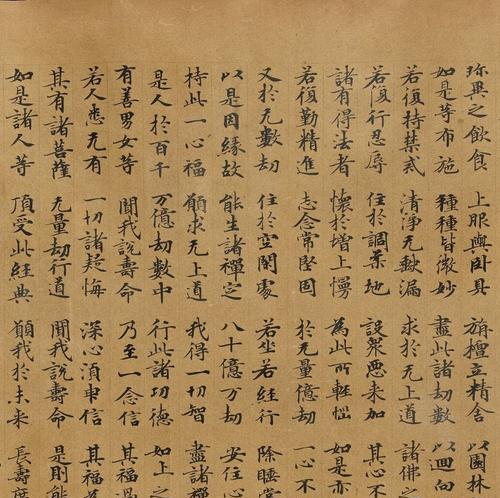 珎異之飲食 上服與卧具 旃檀立精舍 以園林
如是等布施 種種皆微妙 盡此諸劫數 以迴向
若復持禁戒 清淨无缺漏 求於无上道 諸佛
若復行忍辱 住於調柔地 設衆惡来加 其心不
諸有得法者 懷於增上慢 為此所輕惱 如是亦
若復勤精進 志念常堅固 於无量億劫 一心不
又於无數劫 住於空閑處 若坐若經行 除睡常
以是因緣故 能生諸禪定 八十億万劫 安住心
持此一心福 願求无上道 我得一切智 盡諸禪
是人於百千 万億劫數中 行此諸功德 如上之
有善男女等 聞我說壽命 乃至一念信 其福過
若人悉无有 一切諸疑悔 深心須臾信 其福為
其有諸菩薩 无量劫行道 聞我說壽命 是則能
如是諸人等 頂受此經典 願我於未来 長壽度